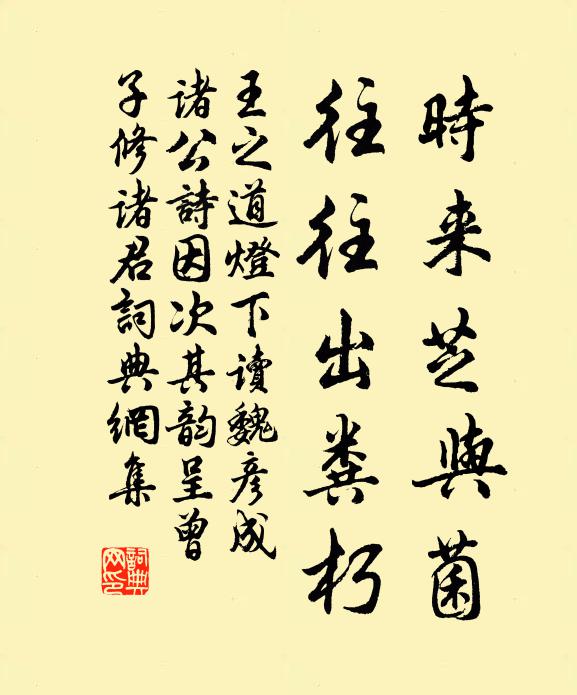 時来芝與菌
往往出粪朽
王之道燈下讀魏彦成
诸公詩因次其韵呈曾
子修诸君詞典網集
詞典网印